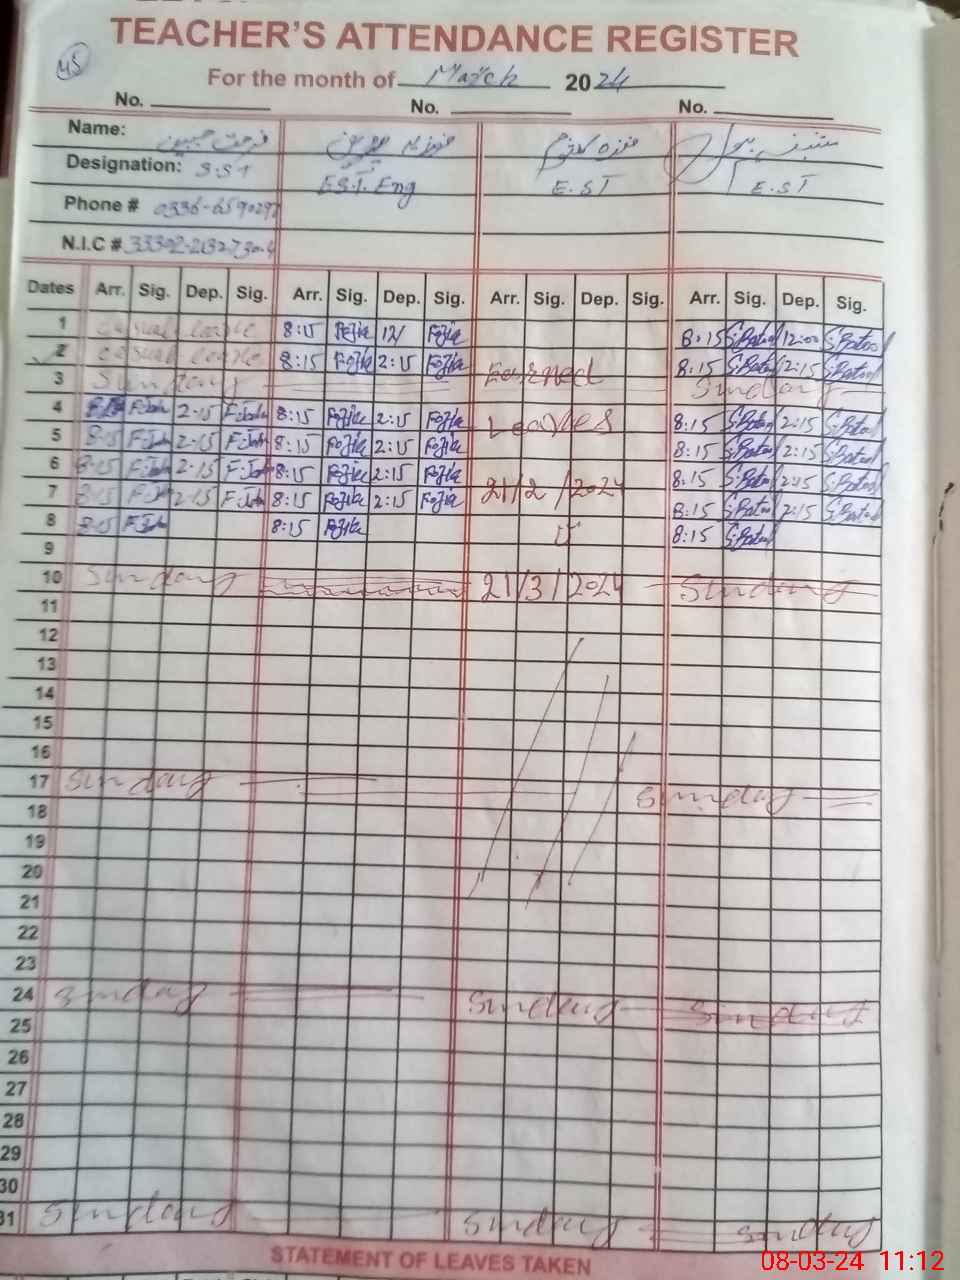 TEACHER'S ATTENDANCE REGISTER
For the month of March 2024
No. No. No.
Name: فرحت جبین
Designation: S.S.T E.S.T. Eng E.ST E.ST
Phone #
N.I.C #
Dates Arr. Sig. Dep. Sig. Arr. Sig. Dep. Sig. Arr. Sig. Dep. Sig. Arr. Sig. Dep. Sig.
1 casual leave 8:15 Fojia 12/ Fojia 8:15 S.Batool 12:00 S.Batool
2 casual leave 8:15 Fojia 2:15 Fojia Earned 8:15 S.Batool 12:15 S.Batool
3 Sunday Sunday
4 2-15 8:15 Fojia 2:15 Fojia Leaves 8:15 S.Batool 2:15 S.Batool
5 8-15 2-15 8:15 Fojia 2:15 Fojia 8:15 S.Batool 2:15 S.Batool
6 8-15 2-15 8:15 Fojia 2:15 Fojia 8:15 S.Batool 2:15 S.Batool
7 8-15 2-15 8:15 Fojia 2:15 Fojia 21/2/2024 8:15 S.Batool 2:15 S.Batool
8 8-15 8:15 Fojia 8:15 S.Batool
9
10 Sunday 21/3/2024 Sunday
11
12
13
14
15
16
17 Sunday Sunday
18
19
20
21
22
23
24 Sunday Sunday Sunday
25
26
27
28
29
30
31 Sunday Sunday Sunday
STATEMENT OF LEAVES TAKEN
08-03-24 11:12